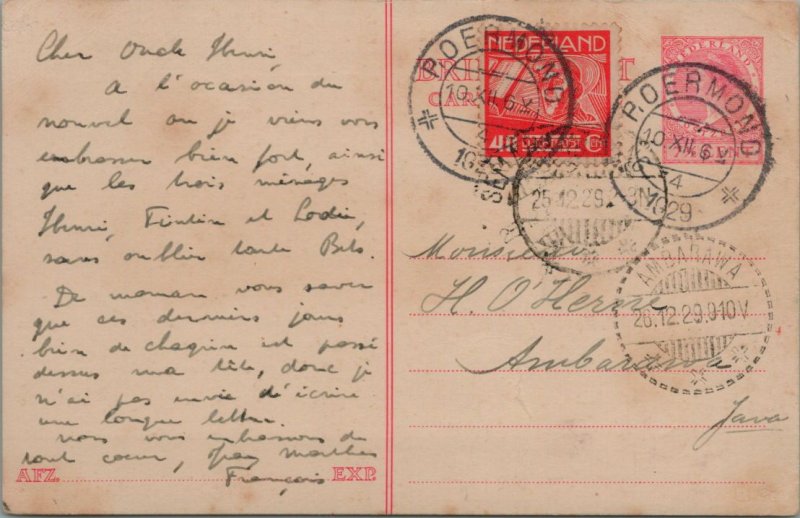 Cher Oncle Henri,
A l'ocasion du
nouvel an je viens vous
embrasser bien fort, ainsi
que les trois ménages
Henri, Tintin et Lodie,
sans oublier tante Bets.
De maman vous savez
que ces derniers jours
bien de chagrin est passé
dessus ma tête, donc je
n'ai pas envie d'écrire
une longue lettre.
Nous vous embrassons de
tout coeur,
François
AFZ.
EXP.
NEDERLAND
BRIEFKAART
NEDERLAND
ROERMOND
10.XII.6V
4
1929
ROERMOND
10.XII.6V
4
1929
25.12.29.
AMBARAWA
26.12.29.910V
Monsieur
H. O'Herne
Ambarawa
Java